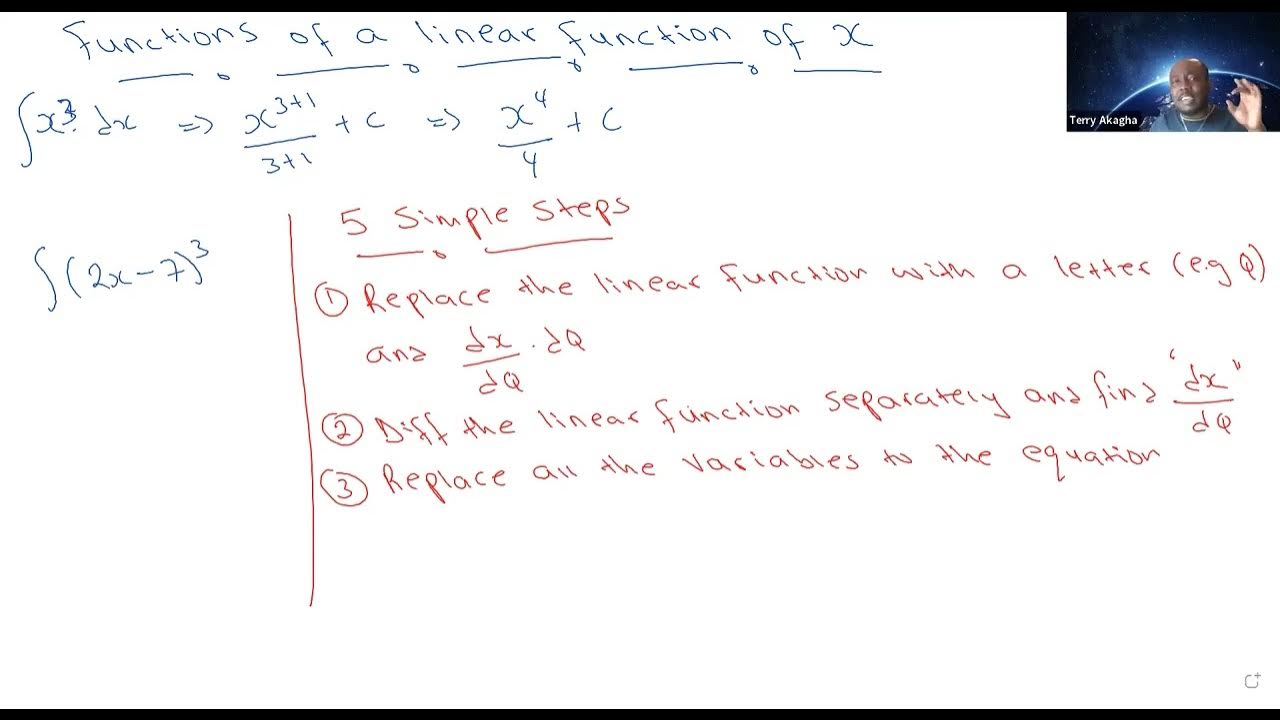 Functions of a linear function of x
Terry Akagha
∫x³ dx ⇒ x³⁺¹/3+1 + c ⇒ x⁴/4 + c
5 Simple Steps
∫(2x-7)³
① Replace the linear function with a letter (e.g Q)
and dx/dQ . dQ
② Diff the linear function separately and find "dx/dQ"
③ Replace all the variables to the equation